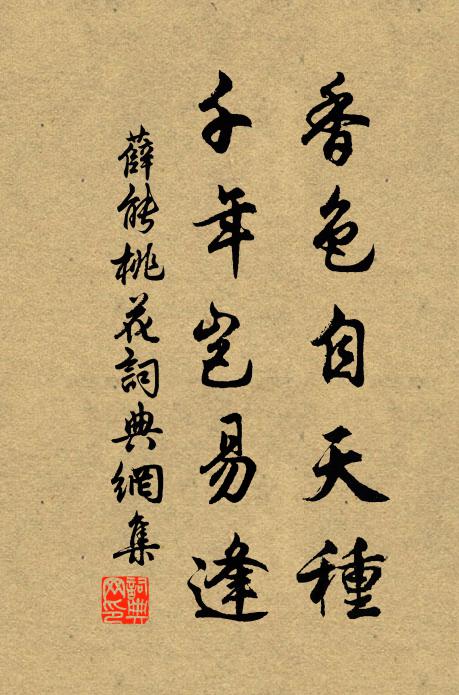 香色自天種
千年豈易逢
薛能桃花詞典網集
詞典網印